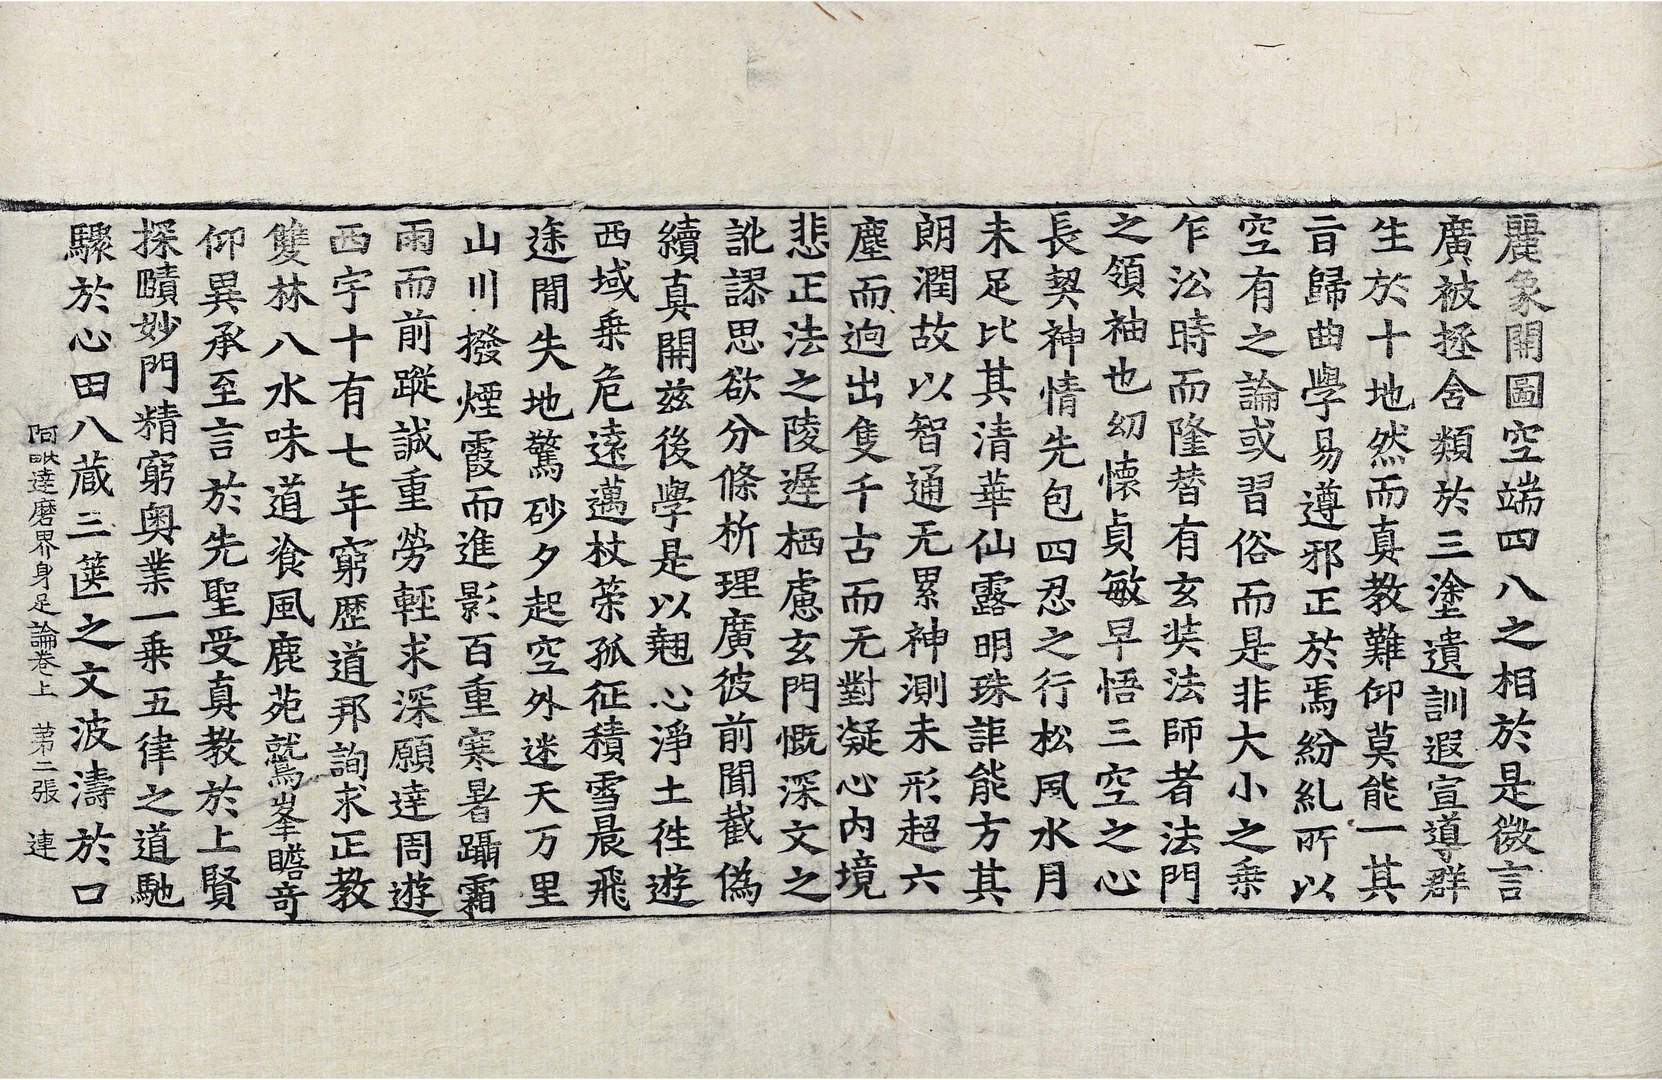 麗象開圖空端四八之相於是微言
廣被拯含類於三塗遺訓遐宣導群
生於十地然而真教難仰莫能一其
旨歸曲學易遵邪正於焉紛糺所以
空有之論或習俗而是非大小之乗
乍㳂時而隆替有玄奘法師者法門
之領袖也幼懷貞敏早悟三空之心
長契神情先包四忍之行松風水月
未足比其清華仙露明珠詎能方其
朗潤故以智通无累神測未形超六
塵而逈出隻千古而无對凝心内境
悲正法之陵遅栖慮玄門慨深文之
訛謬思欲分條析理廣彼前聞截偽
續真開兹後學是以翹心淨土徃遊
西域乗危遠邁杖䇿孤征積雪晨飛
途閒失地驚砂夕起空外迷天万里
山川撥煙霞而進影百重寒暑躡霜
雨而前蹤誠重勞輕求深願達周遊
西宇十有七年窮歷道邦詢求正教
雙林八水味道飡風鹿苑鷲峯瞻奇
仰異承至言於先聖受真教於上賢
探賾妙門精窮奥業一乗五律之道馳
驟於心田八蔵三篋之文波濤於口
阿毗達磨界身足論卷上 苐二張 連